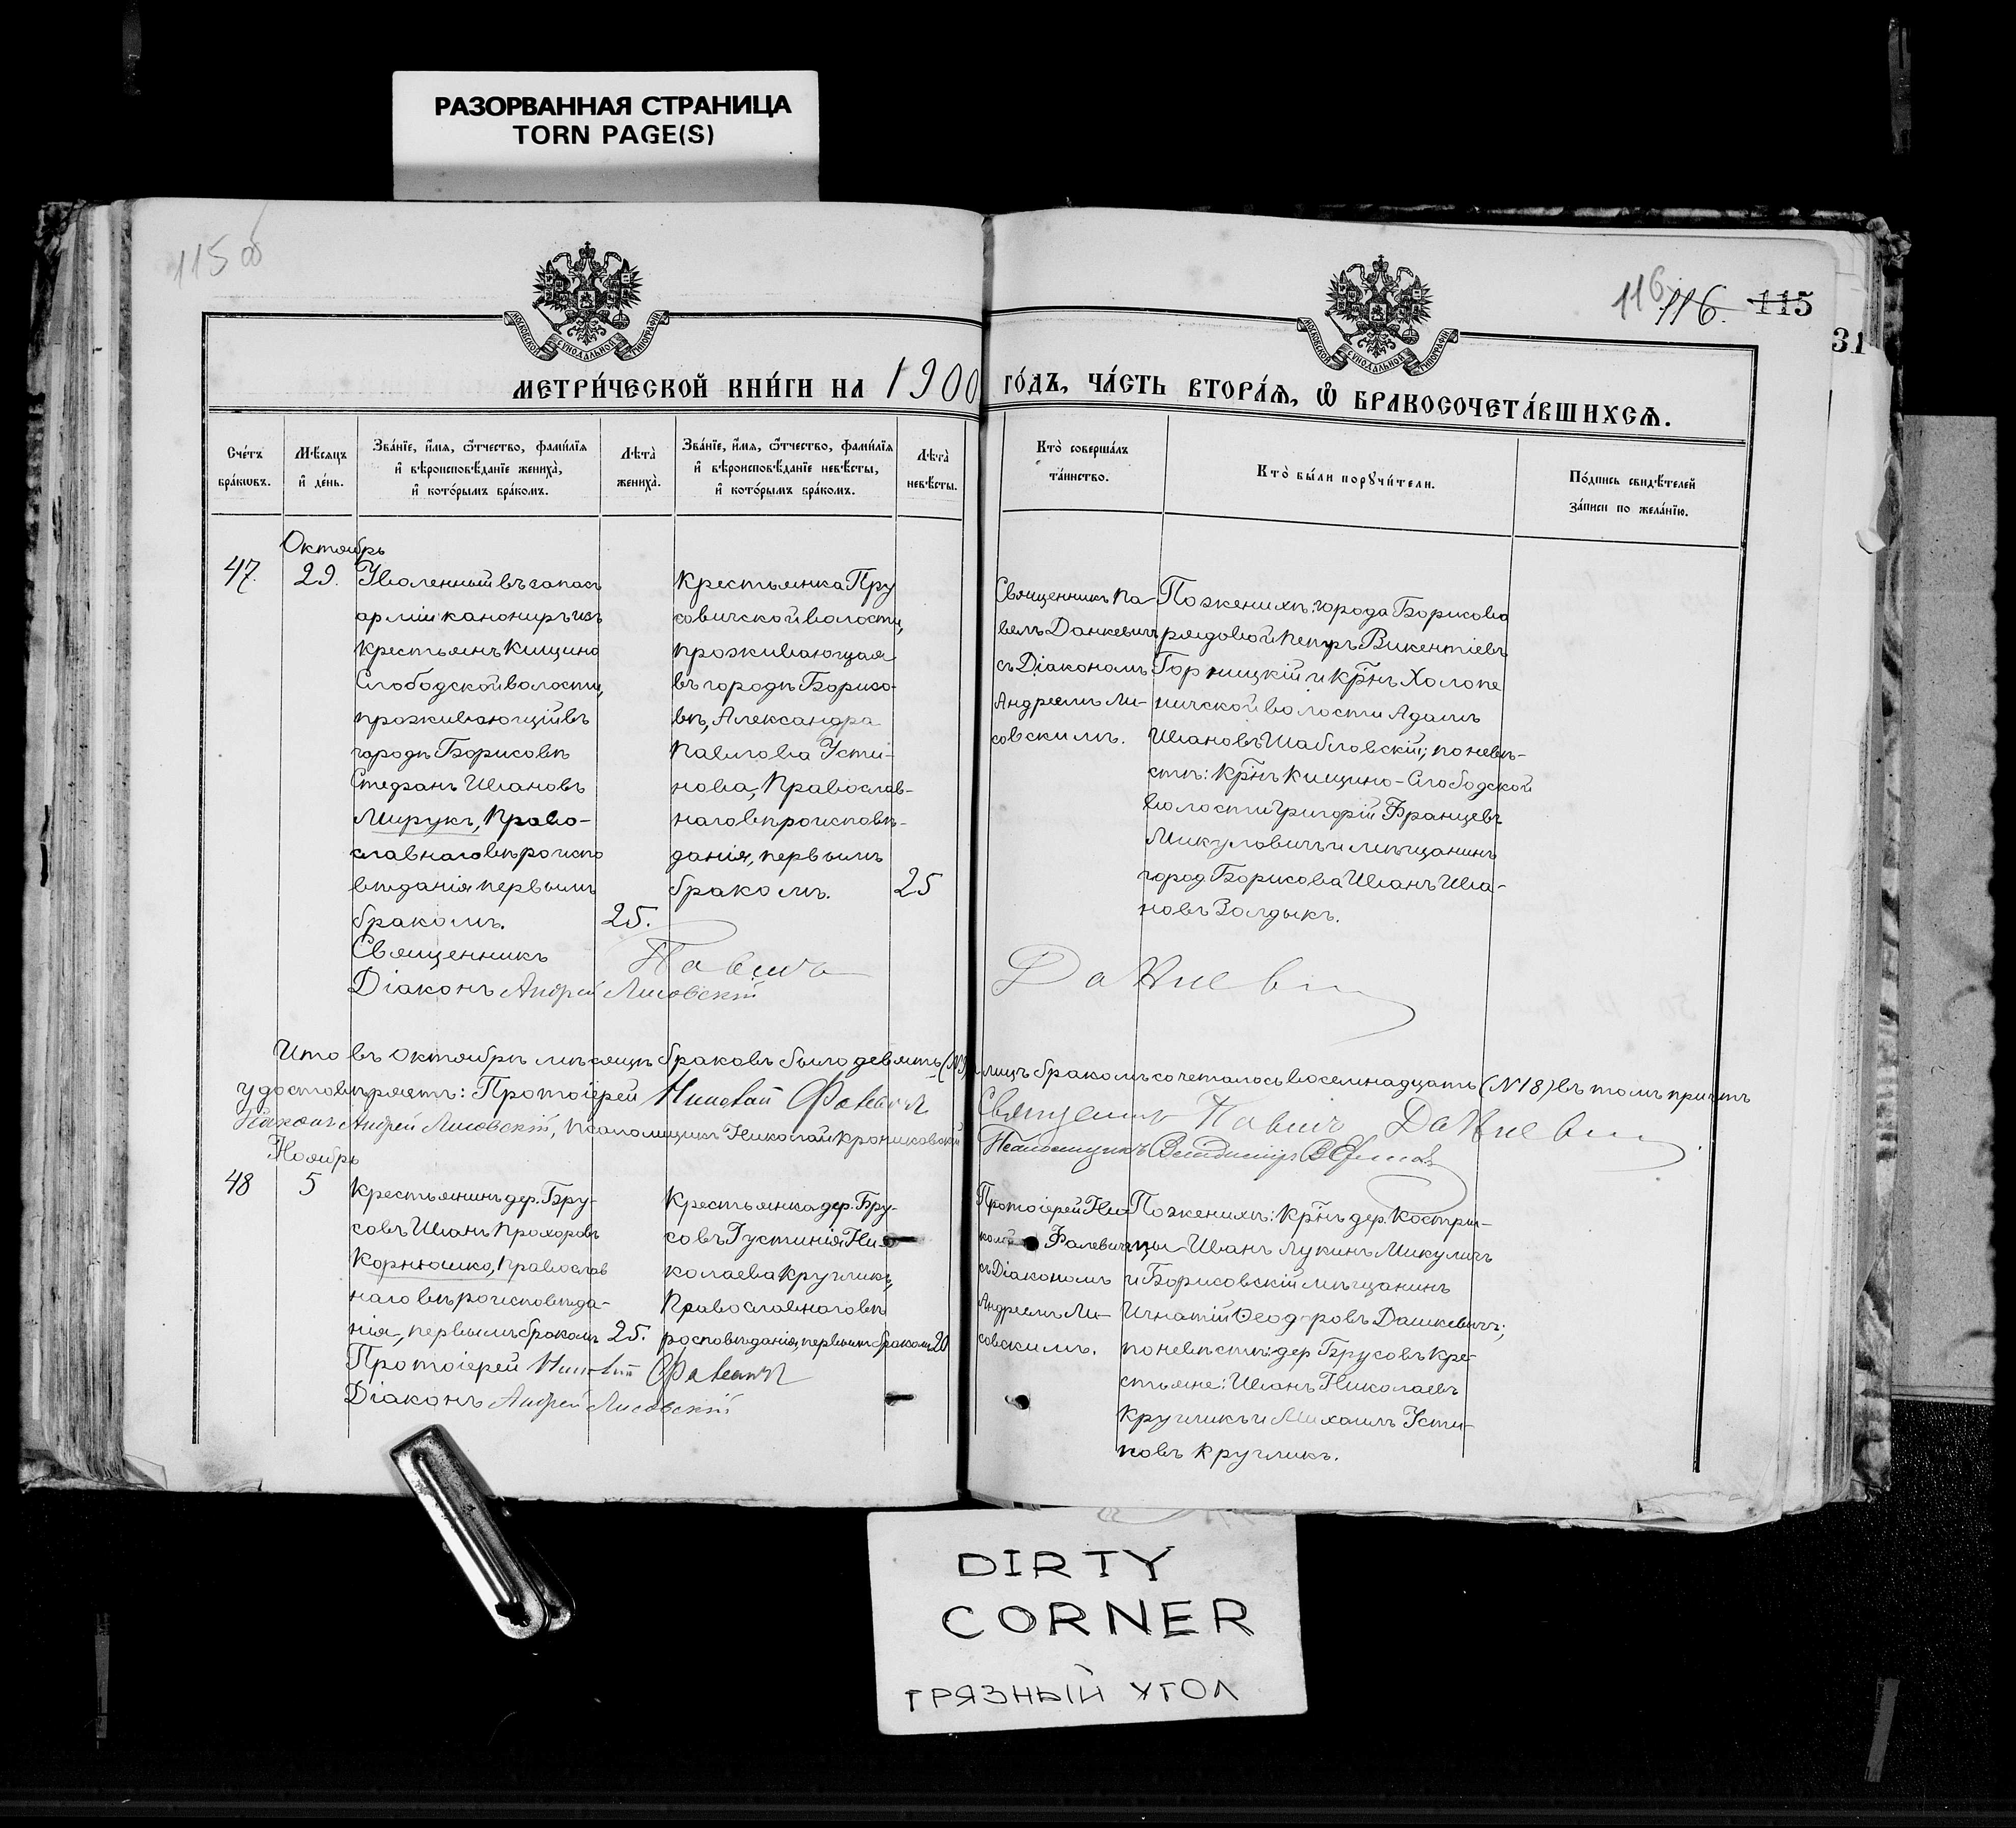 РАЗОРВАННАЯ СТРАНИЦА
TORN PAGE(S)
115 об
116
116. 115
31
МОСКОВСКОЙ СУНОДАЛЬНОЙ ТИПОГРАФІИ
МОСКОВСКОЙ СУНОДАЛЬНОЙ ТИПОГРАФІИ
МЕТРИ́ЧЕСКОЙ КНИ́ГИ НА 1900 ГО́ДЪ, ЧА́СТЬ ВТОРА́Ѧ, Ѿ БРАКОСОЧЕТА́ВШИХСѦ.
Сче́тъ
бра́кѡвъ.
Мѣ́сѧцъ
и҆ де́нь.
Зва́нїе, и҆́мѧ, ѻ҆́тчество, фами́лїѧ
и҆ вѣроисповѣ́данїе жениха̀,
и҆ кото́рымъ бра́комъ.
Лѣта̀
жениха̀.
Зва́нїе, и҆́мѧ, ѻ҆́тчество, фами́лїѧ
и҆ вѣроисповѣ́данїе невѣ́сты,
и҆ кото́рымъ бра́комъ.
Лѣта̀
невѣ́сты.
Кто̀ соверша́лъ
та́инство.
Кто̀ бы́ли порꙋчи́тели.
По́дпись свидѣ́телей
за́писи по жела́нїю.
Октябрь
47.
29.
Уволенный въ запасъ
арміи канониръ изъ
крестьянъ Кищино
Слободской волости,
проживающій въ
городѣ Борисовѣ
Стефанъ Ивановъ
Мирукъ, Право-
славнаго вѣроиспо
вѣданія первымъ
бракомъ.
25.
Крестьянка Пру
совичской волости,
проживающая
въ городѣ Борисо-
вѣ, Александра
Павлова Усти-
нова, Православ-
наго вѣроисповѣ-
данія, первымъ
бракомъ.
25
Священникъ Па-
велъ Данкевичъ
съ Діакономъ
Андреемъ Ли-
совскимъ.
По женихѣ: города Борисова
рядовой Петръ Викентіевъ
Горницкій и кр͞нъ Холопе
ничской волости Адамъ
Ивановъ Шабловскій; по невѣ-
стѣ: кр͞нъ Кищино-Слободской
волости Григорій Францевъ
Микуловичъ и мѣщанинъ
город Борисова Иванъ Ива-
новъ Золдыкъ.
Священникъ Павелъ Данкевичъ
Діаконъ Андрей Лисовскій
Итого въ Октябрѣ мѣсяцѣ браковъ было девять (№9) лицъ бракомъ сочеталось восемнадцать (№18) въ томъ причтъ
удостовѣряетъ: Протоіерей Николай Фалевичъ Священникъ Павелъ Данкевичъ
Діаконъ Андрей Лисовскій, псаломщикъ Николай Крониковскій Псаломщикъ Владиміръ
Ноябрь
48
5
Крестьянинъ дер. Бру-
совъ Иванъ Прохоровъ
Корнюшко, Православ
наго вѣроисповѣда-
нія, первымъ бракомъ
25.
Крестьянка дер. Бру-
совъ Іустинія Ни-
колаева Кругликъ,
Православнаго вѣ
росповѣданія, первымъ бракомъ
20
Протоіерей Ни-
колай Фалевичъ
съ Діакономъ
Андреемъ Ли-
совскимъ.
По женихѣ: кр͞нъ дер. Костри-
цы Иванъ Лукинъ Микуличъ
и Борисовскій мѣщанинъ
Игнатій Ѳеодоровъ Дашкевичъ;
по невѣстѣ: дер Брусовъ кре-
стьяне: Иванъ Николаевъ
Кругликъ и Михаилъ Усти-
новъ Кругликъ.
Протоіерей Николай Фалевичъ
Діаконъ Андрей Лисовскій
DIRTY
CORNER
ГРЯЗНЫЙ УГОЛ